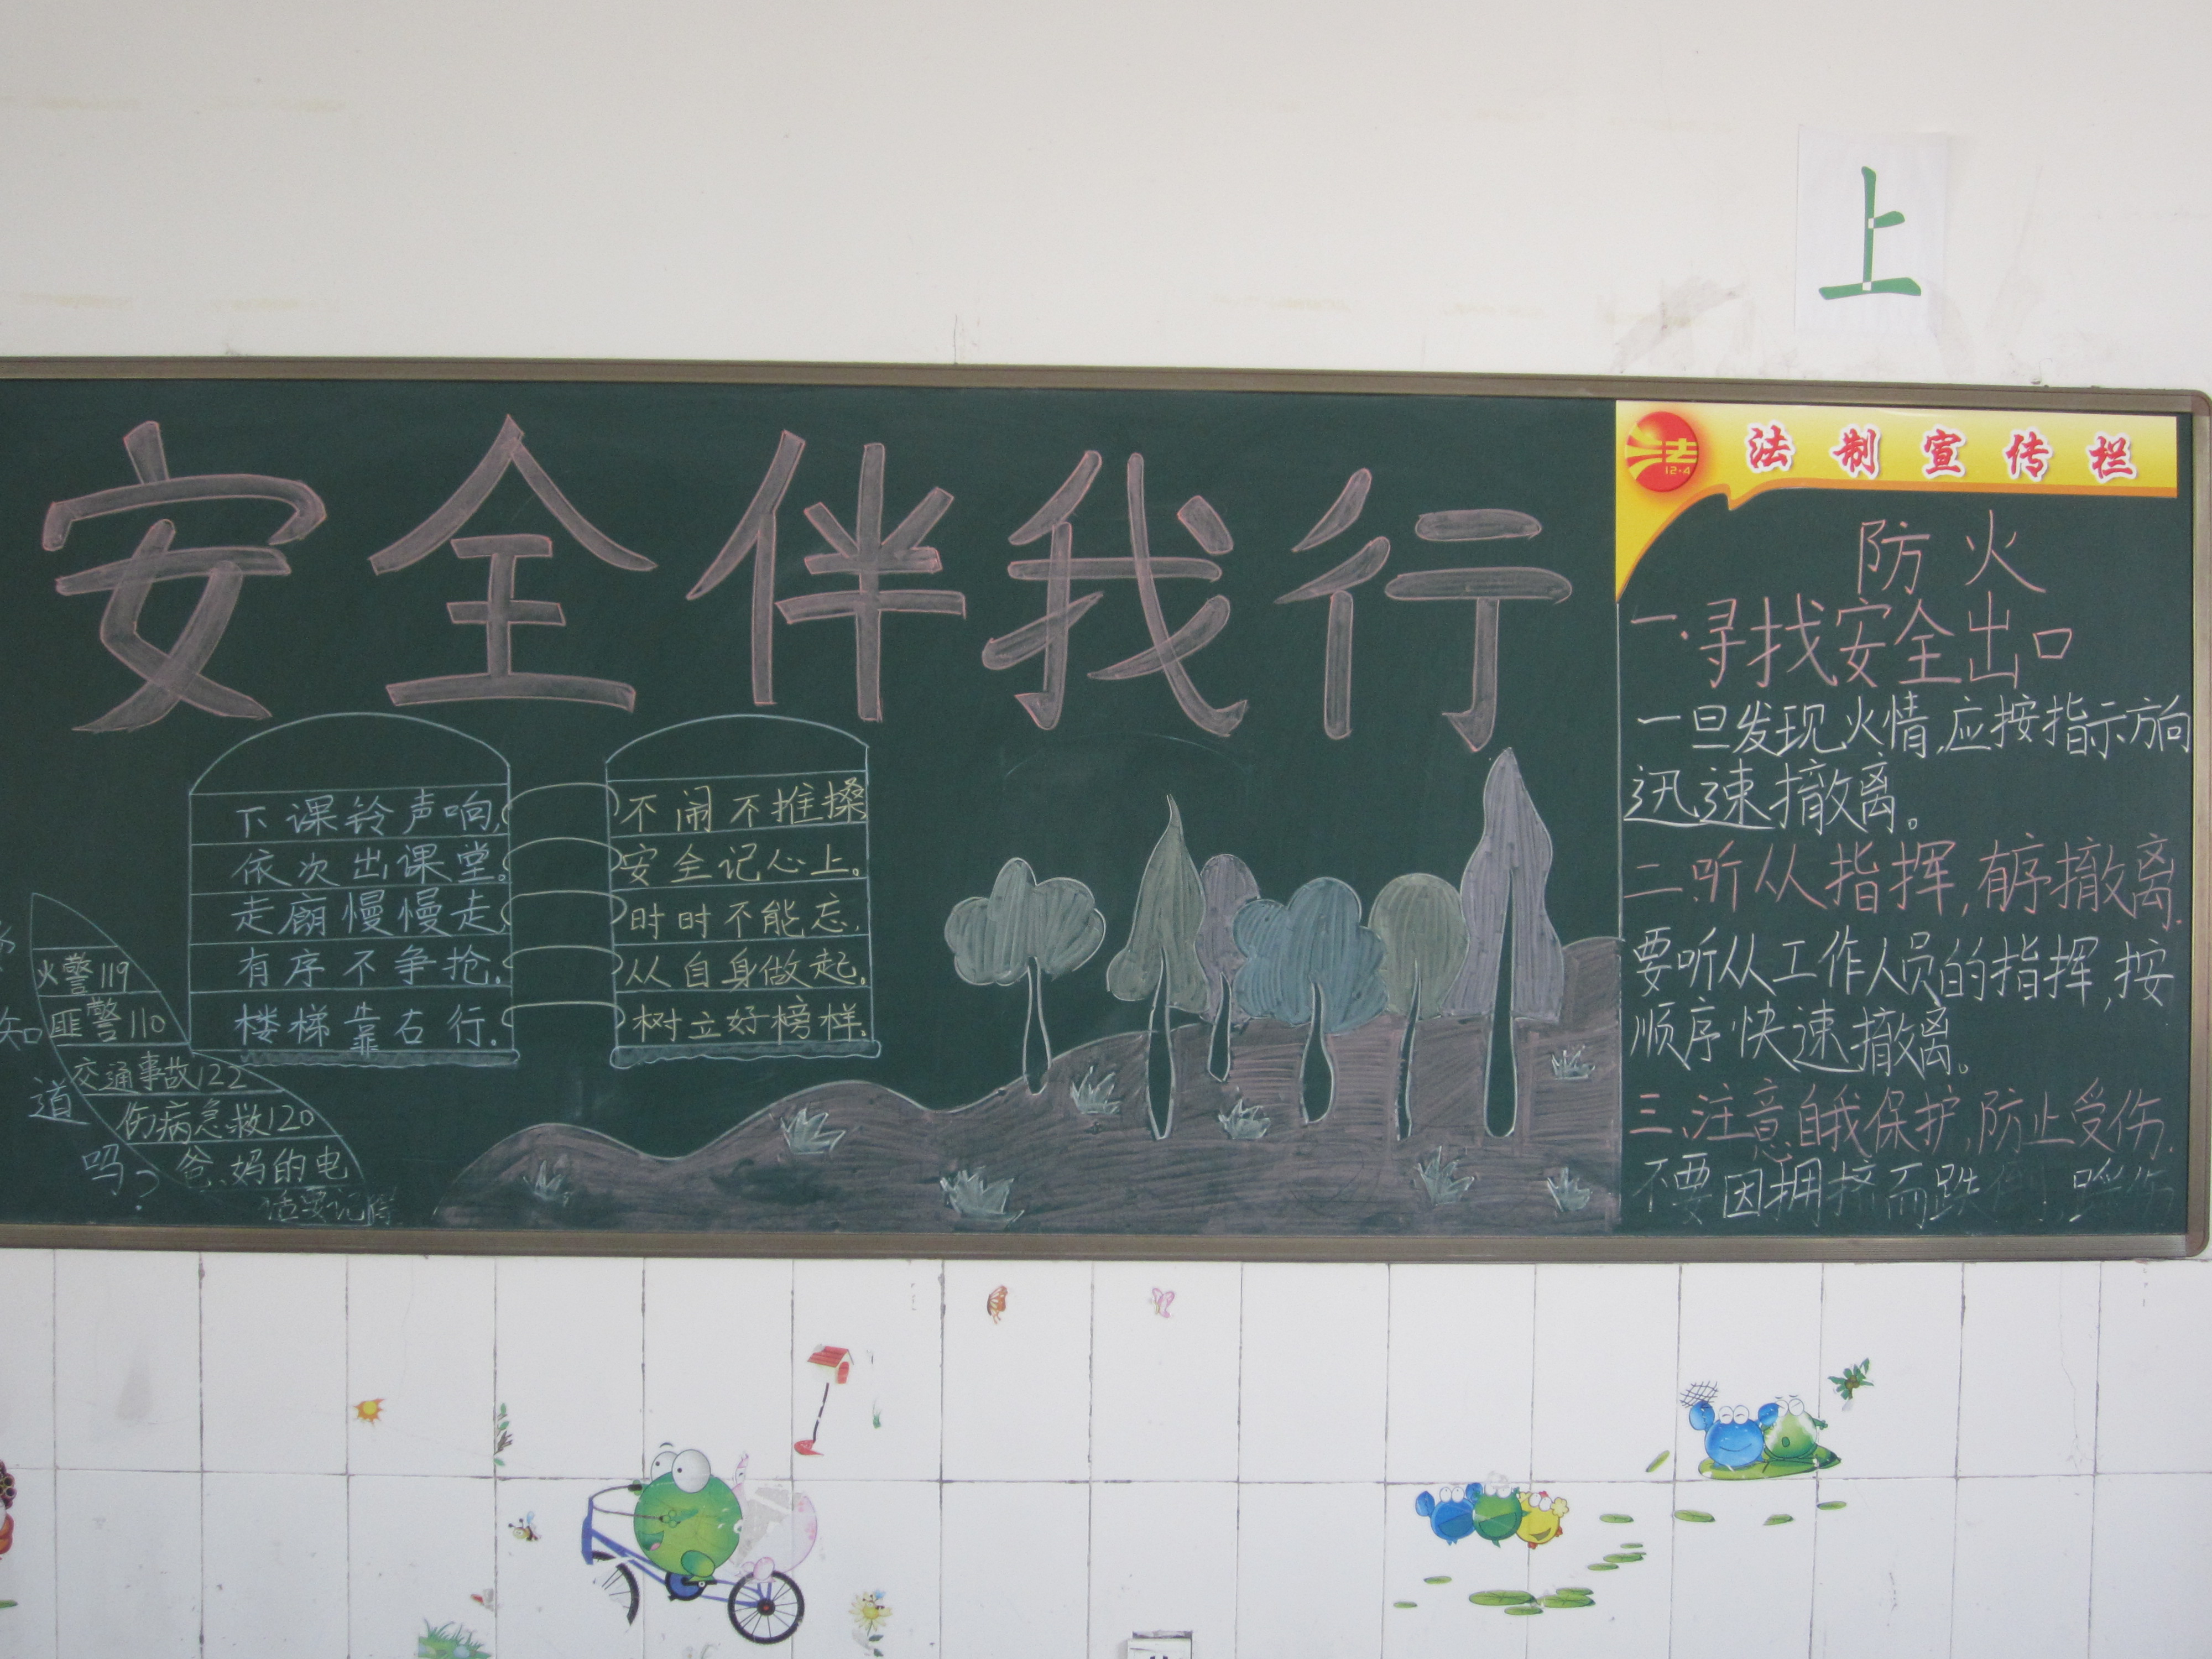 上
法制宣传栏
法
12·4
安全伴我行
下课铃声响,
依次出课堂。
走廊慢慢走,
有序不争抢.
楼梯靠右行.
不闹不推搡
安全记心上。
时时不能忘,
从自身做起。
树立好榜样.
知
道
吗?
火警119
匪警110
交通事故122
伤病急救120
爸.妈的电
话要记得
防火
一.寻找安全出口
一旦发现火情,应按指示方向
迅速撤离。
二.听从指挥,有序撤离.
要听从工作人员的指挥,按
顺序快速撤离。
三.注意自我保护,防止受伤.
不要因拥挤而跌倒,踩伤